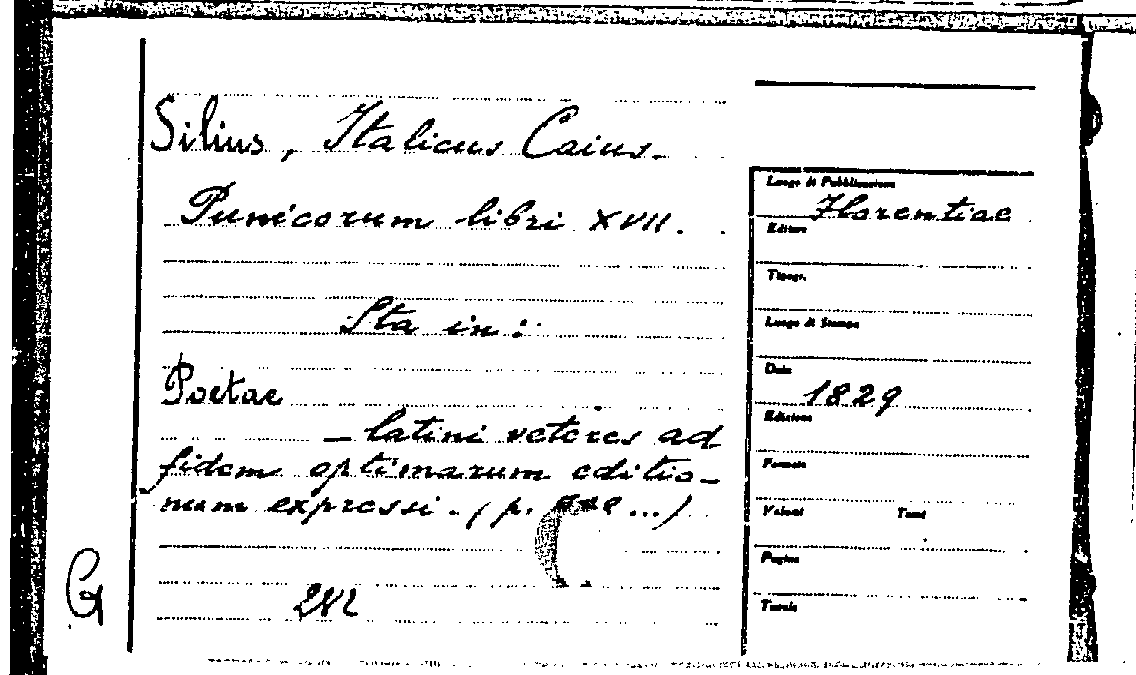 Silius, Italicus Caius.
Punicorum libri XVII.
Sta in:
Poetae
– latini veteres ad
fidem optimarum editio-
num expressi. (p. ...)
G
Luogo di Pubblicazione
Florentiae
Editore
Tipogr.
Luogo di Stampa
Data
1829
Edizione
Formato
Volumi Tomi
Pagine
Tavole